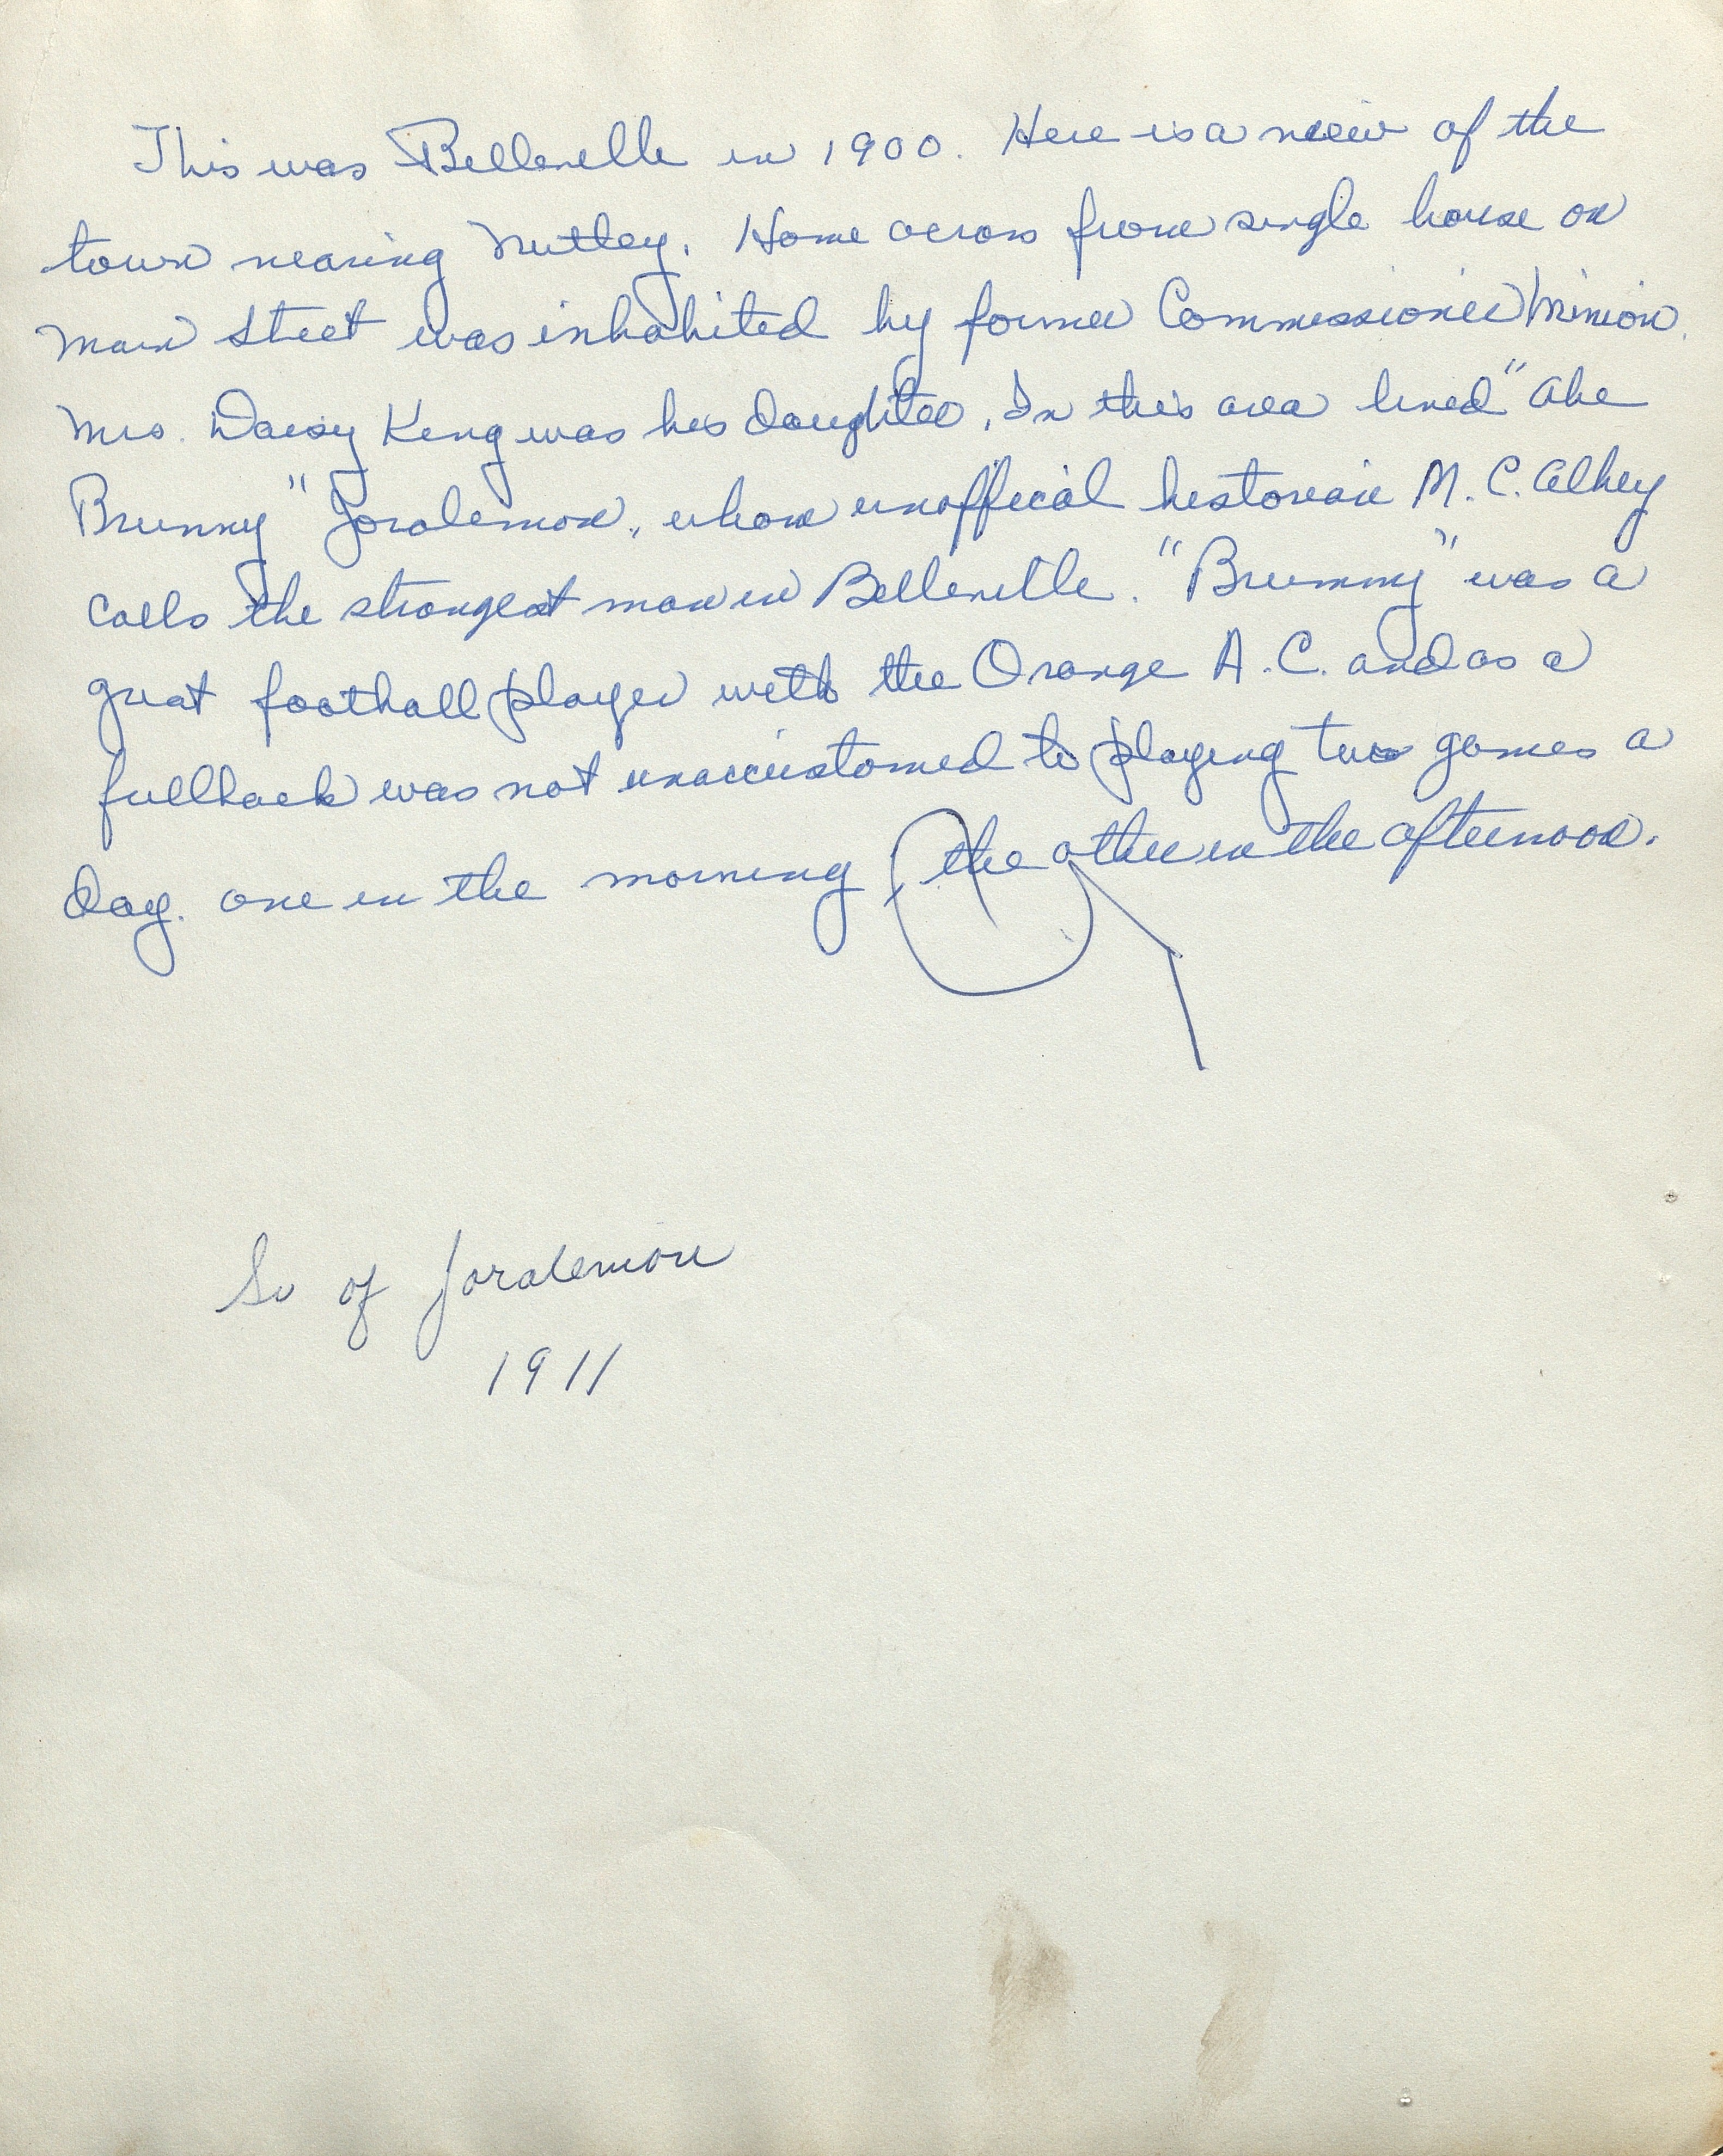 This was Belleville in 1900. Here is a view of the
town nearing Nutley. Home across from single house on
Main Street was inhabited by former Commissioner Minion.
Mrs. Daisy King was his daughter. In this area lived "Abe
Brummy" Joralemon, whom unoffical historian M.C. Albey
calls the strongest man in Belleville. "Brummy" was a
great football player with the Orange A.C. and as a
fullback was not unaccustomed to playing two games a
day. one in the morning, the other in the afternoon.
So of Joralemon
1911